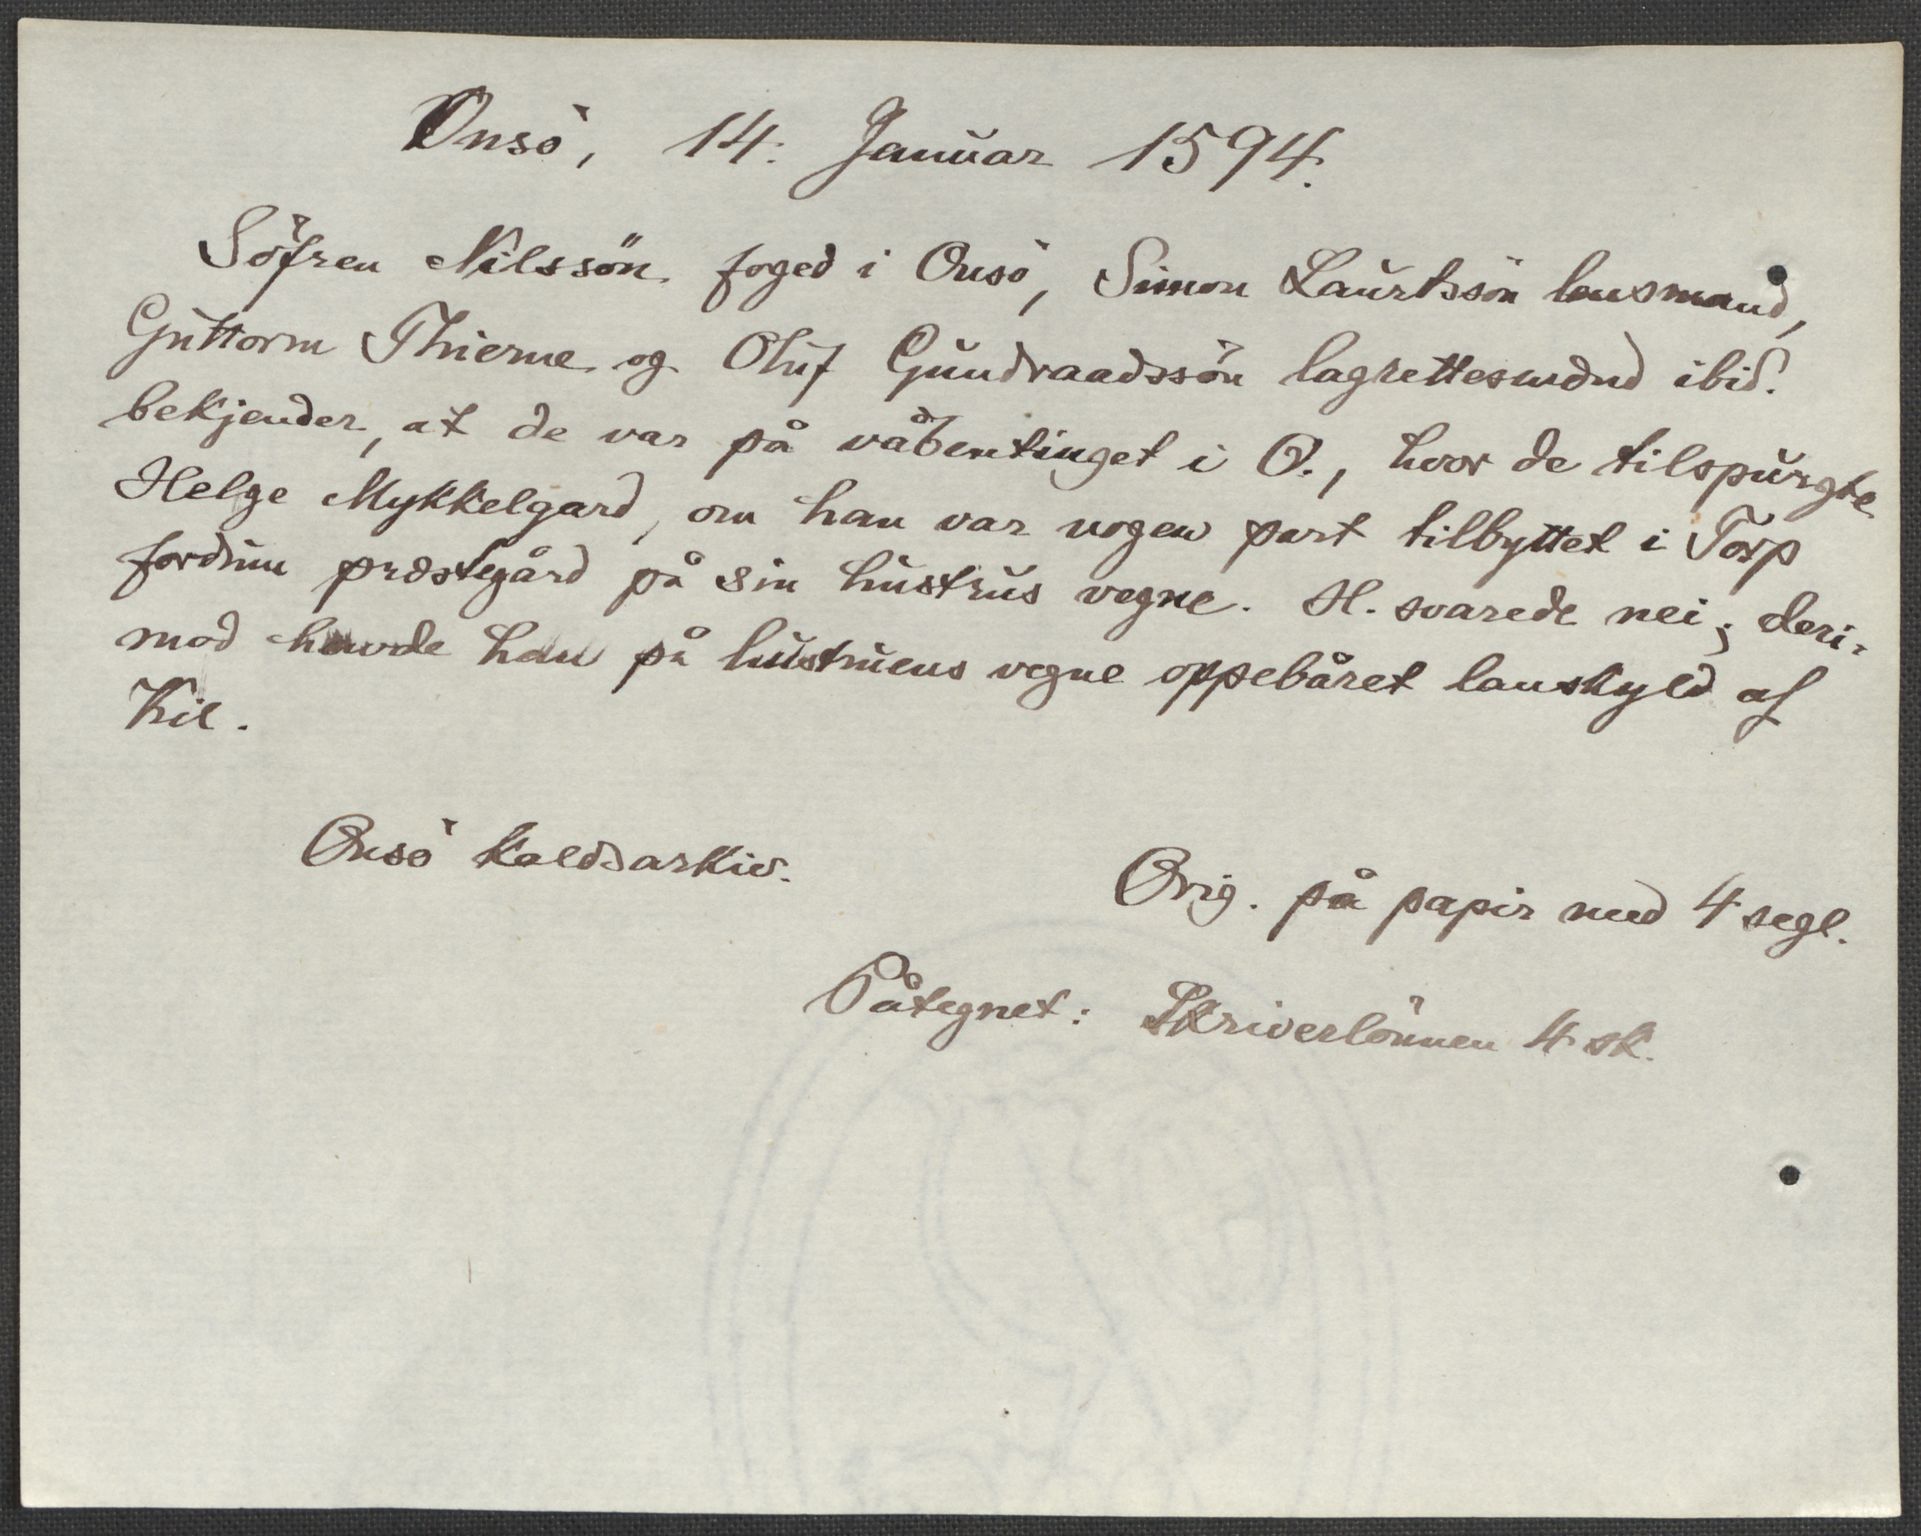 Onsö, 14. Januar 1594.
Söfren Nilssön foged i Onsö, Simon Laurtssön lensmand,
Guttorm Thierne og Oluf Gundraadssön lagrettesmænd ibid.
bekjender, at de var på våbentinget i O., hvor de tilspurgte
Helge Mykkelgard, om han var nogen part tilbyttet i Torp
fordum præstegård på sin hustrus vegne. H. svarede nei; deri-
mod havde han på hustruens vegne oppebåret lanskyld af
Kil.
Onsö kaldsarkiv.
Orig. på papir med 4 segl.
Påtegnet: Skriverlönnen 4 sk.